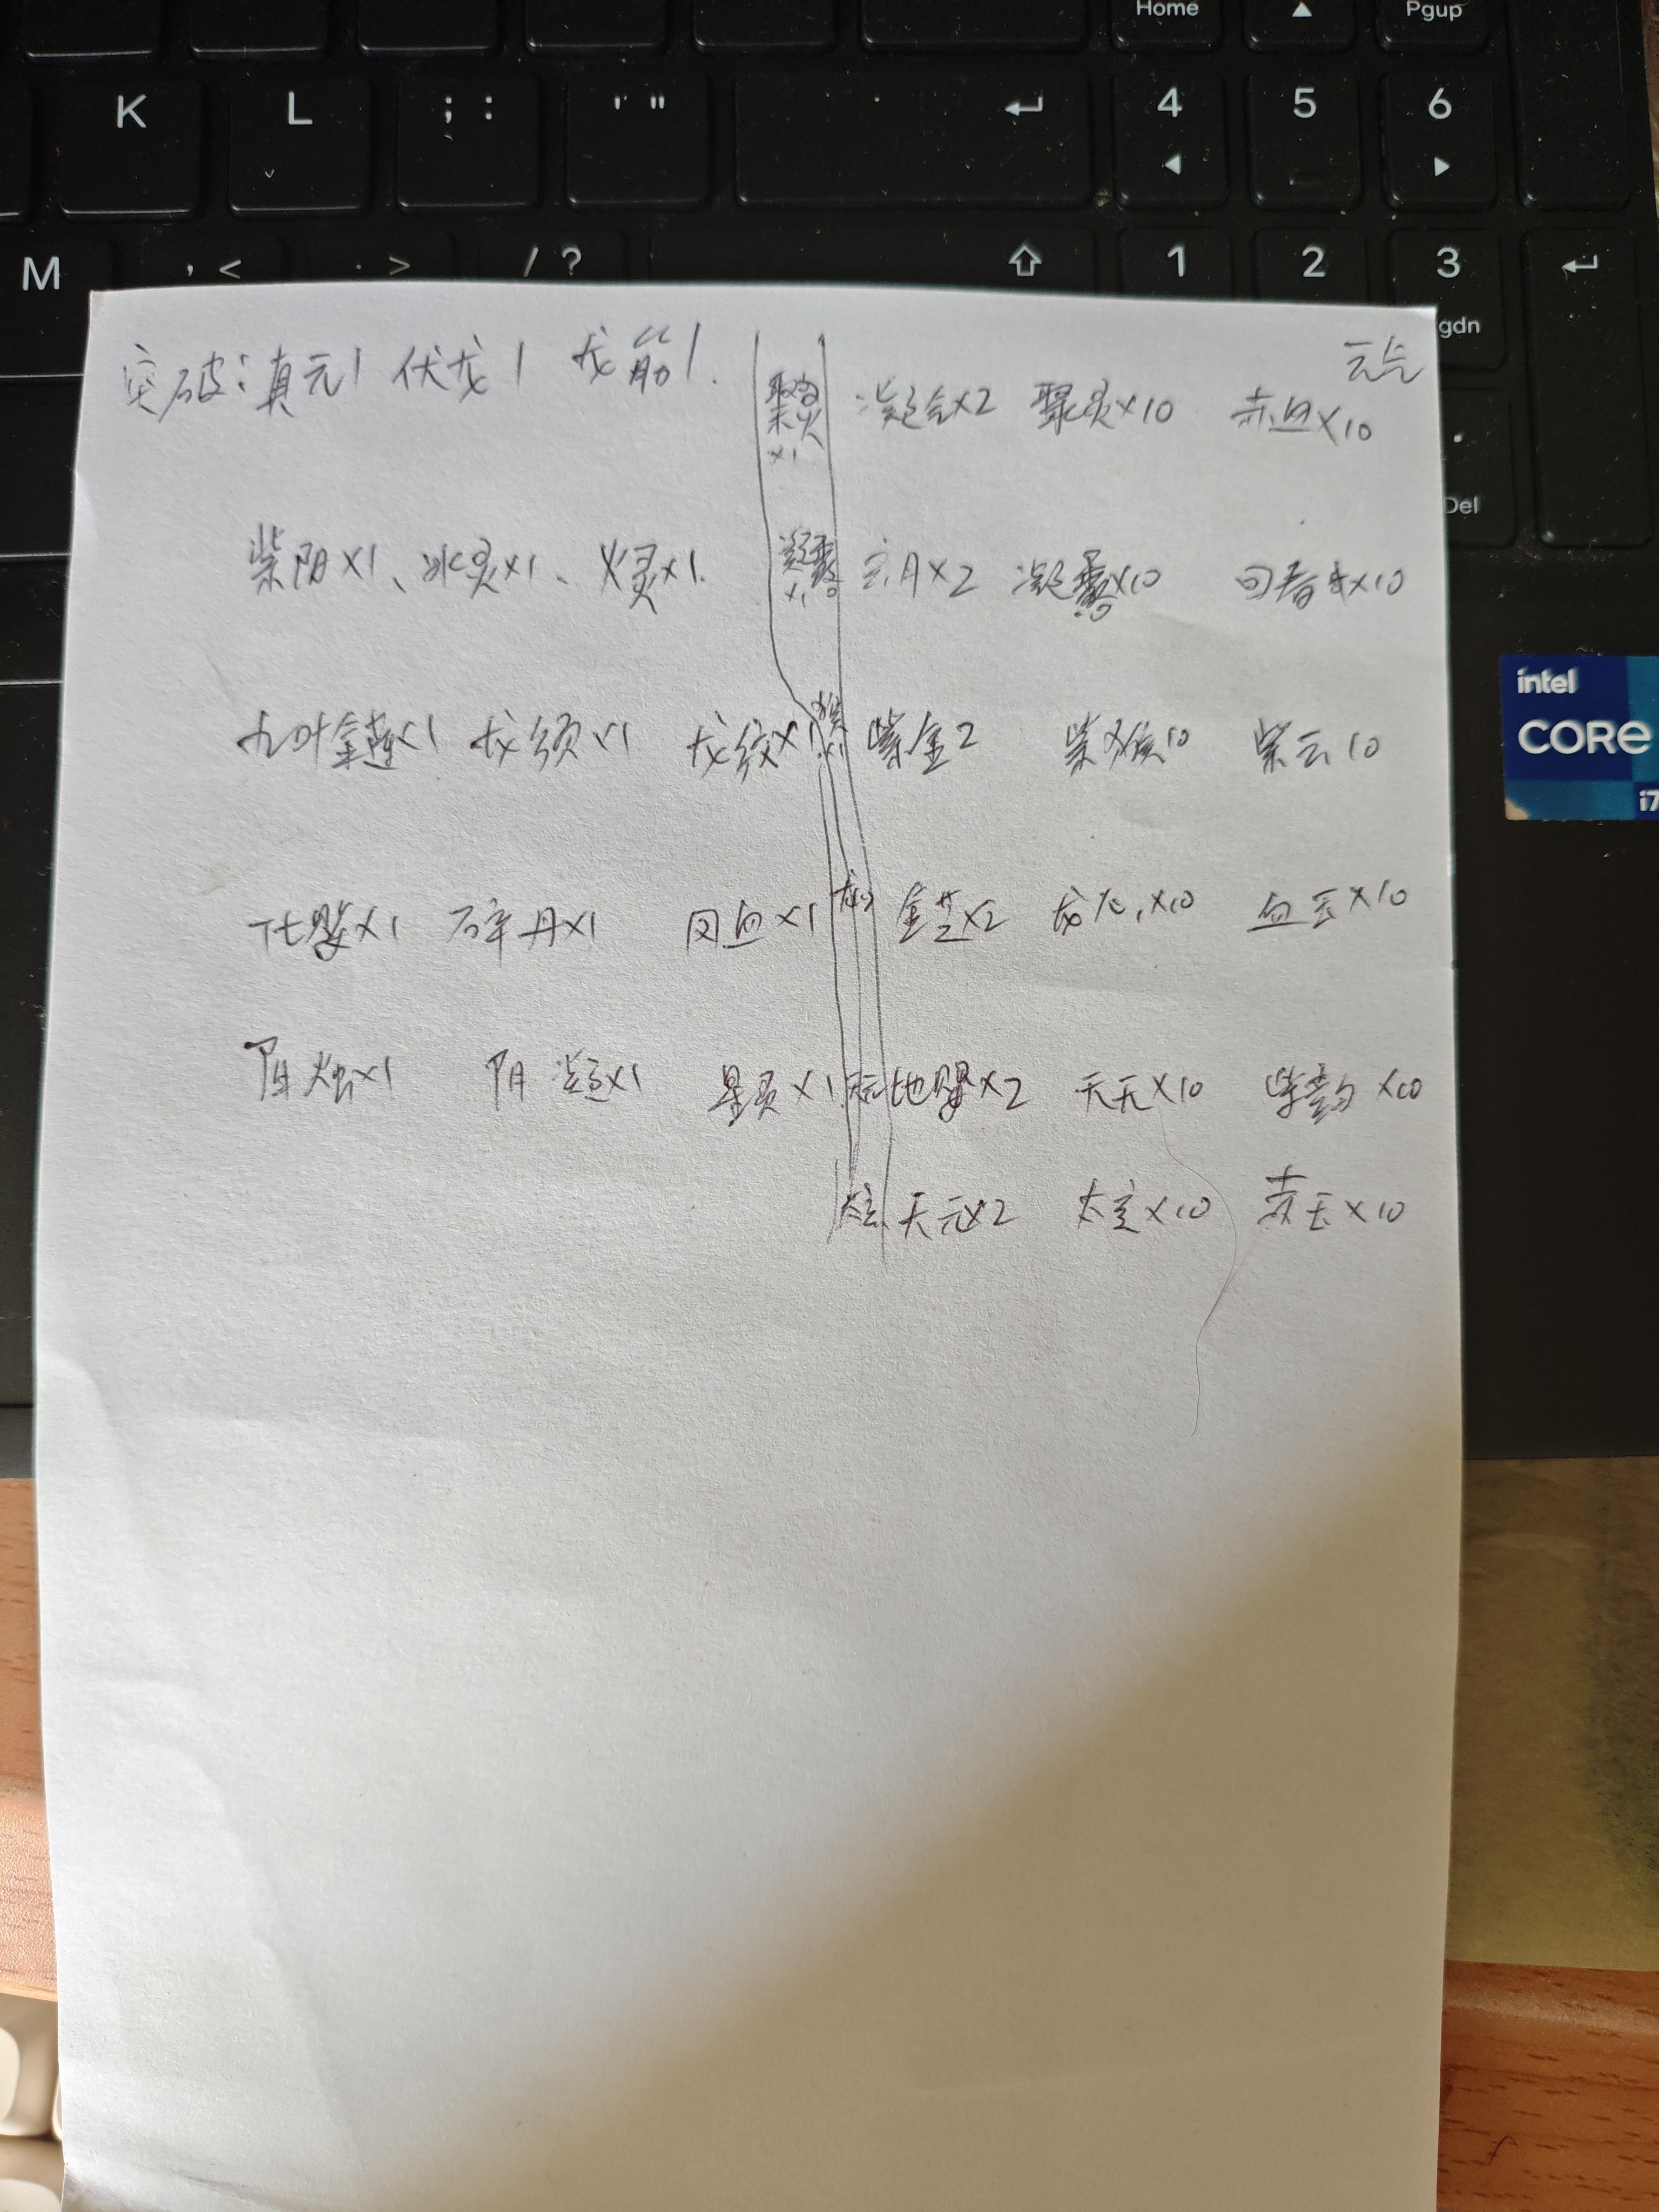 Home ▲ Pgup
K L ; : ' " 4 5 6
M , < . > / ? 1 2 3
gdn
元气
突破:真元1 伏龙1 龙筋1. 聚灵×1 凝金×2 聚灵×10 赤血×10
Del
紫阳×1、冰灵×1、火灵×1. 凝露×1 玄月×2 凝露×10 回春×10
intel
九叶金莲×1 龙须×1 龙纹×1 紫猴×1 紫金2 紫猴10 紫云10
CORE
i7
化婴×1 碎丹×1 风血×1 金芝×2 龙 ×10 血玉×10
阳炎×1 阴凝×1 星灵×1 地婴×2 天元×10 紫 ×10
太玄 天元×2 太玄×10 赤玉×10